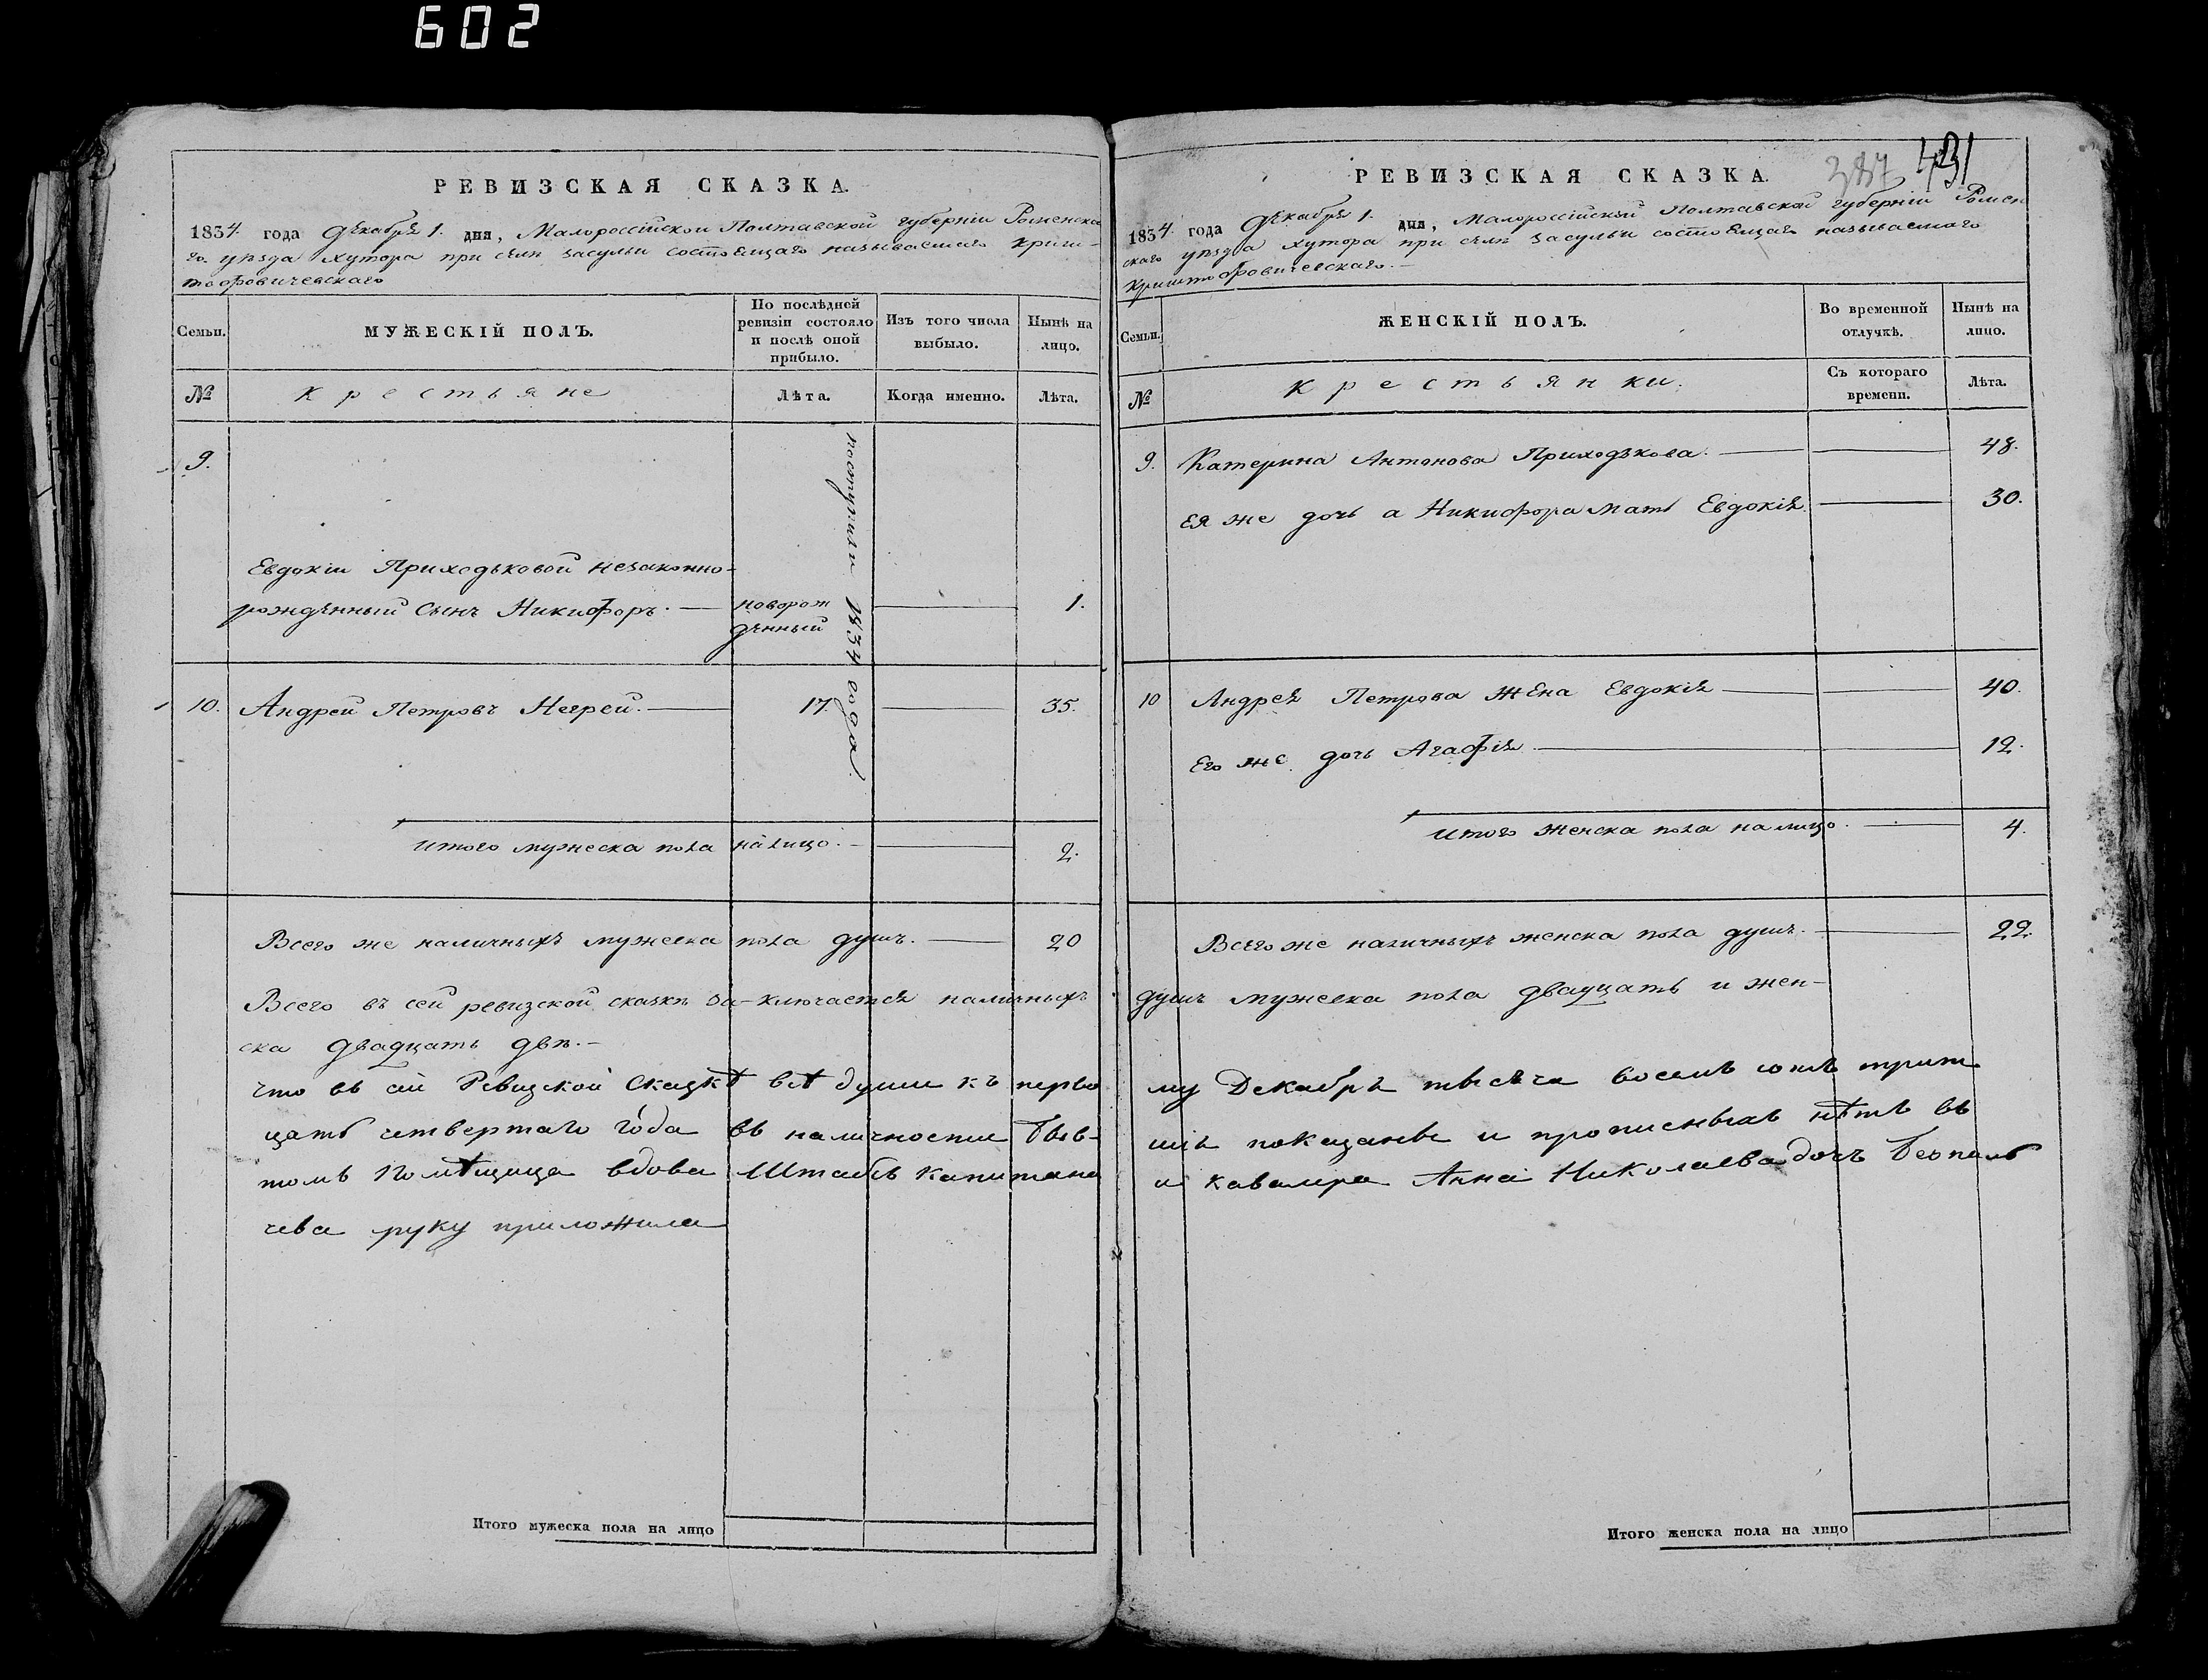 602
РЕВИЗСКАЯ СКАЗКА.
1834. года Декабря 1. дня, Малороссійской Полтавской губерніи Роменска
го уѣзда хутора при селѣ Засульи состоящаго называемаго Криш-
тофовичевскаго
Семьи.
МУЖЕСКІЙ ПОЛЪ.
По послѣдней
ревизіи состояло
и послѣ оной
прибыло.
Изъ того числа
выбыло.
Нынѣ на
лицо.
№
Крестьяне
Лѣта.
Когда именно.
Лѣта.
поступили 1834 года
9.
Евдокіи Приходьковой незаконно-
рожденный сынъ Никифоръ. новорож 1.
денный
10. Андрей Петровъ Негрей. 17. 35.
Итого мужеска пола налицо. 2.
Всего же наличныхъ мужеска пола душъ. 20
Всего въ сей ревизской сказкѣ за-ключается наличныхъ
ска двадцать двѣ.
что въ сей Ревизкой Сказкѣ всѣ души къ перво
цать четвертаго года въ наличности быв-
томъ Помѣщица вдова Штабсъ капитана
чева руку приложила
Итого мужеска пола на лицо
387 431
РЕВИЗСКАЯ СКАЗКА.
1834. года Декабря 1. дня, Малороссійской Полтавской губерніи Ромен
скаго уѣзда хутора при селѣ Засульи состоящаго называемаго
Криштофовичевскаго.
Семьи.
ЖЕНСКІЙ ПОЛЪ.
Во временной
отлучкѣ.
Нынѣ на
лицо.
№
Крестьянки.
Съ котораго
времени.
Лѣта.
9. Катерина Антонова Приходькова. 48.
Ея же дочь а Никифора мать Евдокія 30.
10 Андрея Петрова жена Евдокія 40.
Его же дочь Агафія 12.
Итого женска пола на лицо. 4.
Всего же наличныхъ женска пола душъ. 22.
душъ мужеска пола двадцать и жен-
му Декабря тысяча восемь сотъ трит
шія показаны и прописныхъ нѣтъ въ
и кавалера Анна Николаева дочь
Итого женска пола на лицо